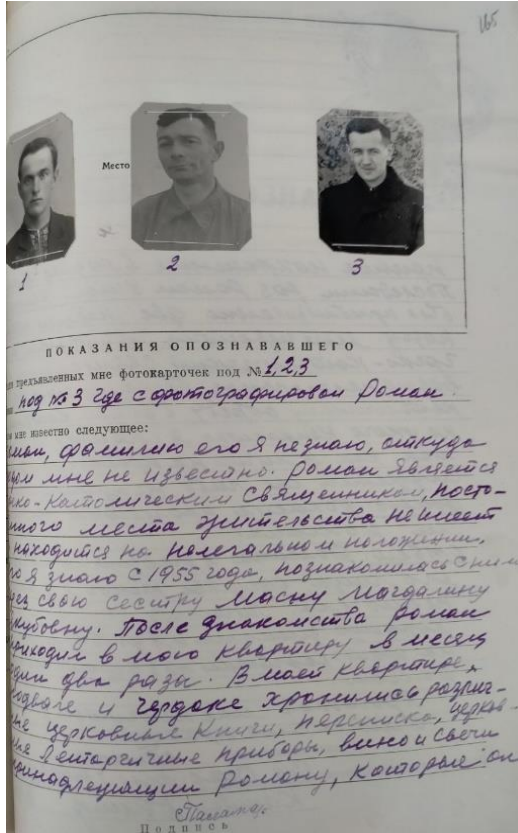 165
Место
1
2
3
ПОКАЗАНИЯ ОПОЗНАВАВШЕГО
предъявленных мне фотокарточек под № 1,2,3
под № 3 где сфотографирован Роман.
мне известно следующее:
фамилию его я не знаю, откуда
мне не известно. Роман является
ко-католическим священником, посто-
нного места жительства не имеет
находится на нелегальном положении.
го я знаю с 1955 года, познакомилась с ним
свою сестру Масну Магдалину
кубовну. После знакомства Роман
приходил в мою квартиру в месяц
два разы. В моей квартире,
и чердаке хранились различ-
ные церковные книги, переписка, церков-
ные приборы, вино и свечи
Роману, которые он
Подпись